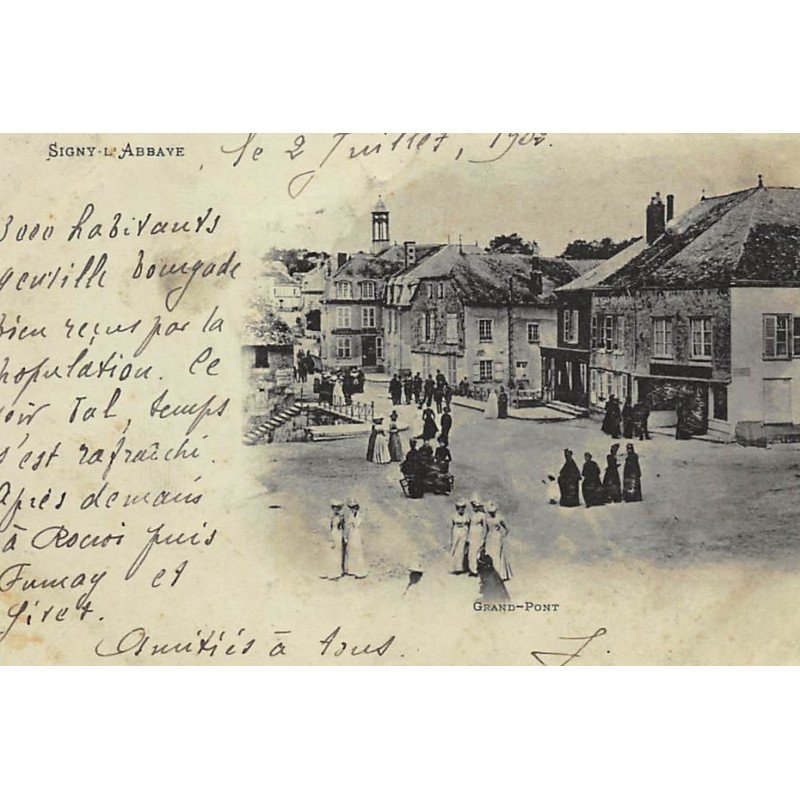 SIGNY-L'ABBAYE
le 2 Juillet, 1902.
3000 habitants
gentille bourgade
bien reçus par la
population. Ce
soir Tal, temps
s'est rafraîchi.
Après demain
à Rocroi puis
Fumay et
Givet.
Amitiés à tous.
J.
GRAND-PONT